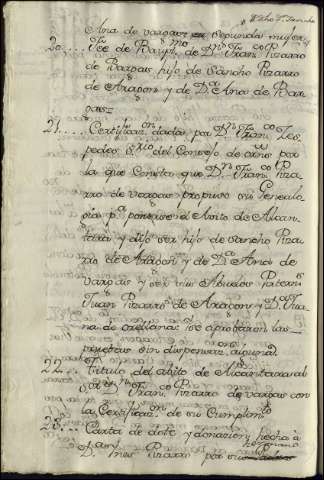 Ana de vargas su segunda muger
20.... Fee de Bapt.mo de D.n Fran.co Pizarro
de Bargas hijo de Sancho Pizarro
de Aragon y de D.a Ana de Bar
gas=
21.... Certificaz.on dada por D.n Fran.co Ces
pedes S.rio del Consejo de ornĕs por
la que Consta que D.n Fran.co Piza
rro de vargas propuso su Genealo
gia p.a ponerse el Avito de Alcan
tara y dijo ser hijo de Sancho Piza
rro de Aragon y de D.a Ana de
vargas y ser sus Abuelos Patern.s
Juan Pizarro de Aragon y D.a Jua
na de orellana: se aprobaron las
pruebas sin dispensaz.on alguna
22.... Titulo del abito de Alcantara al
D.n Fran.co Pizarro de vargas con
la Certificaz.on de su Cumplim.to
23.... Carta de dote y donacion hecha à
D.a Ines Pizarro por su hermano